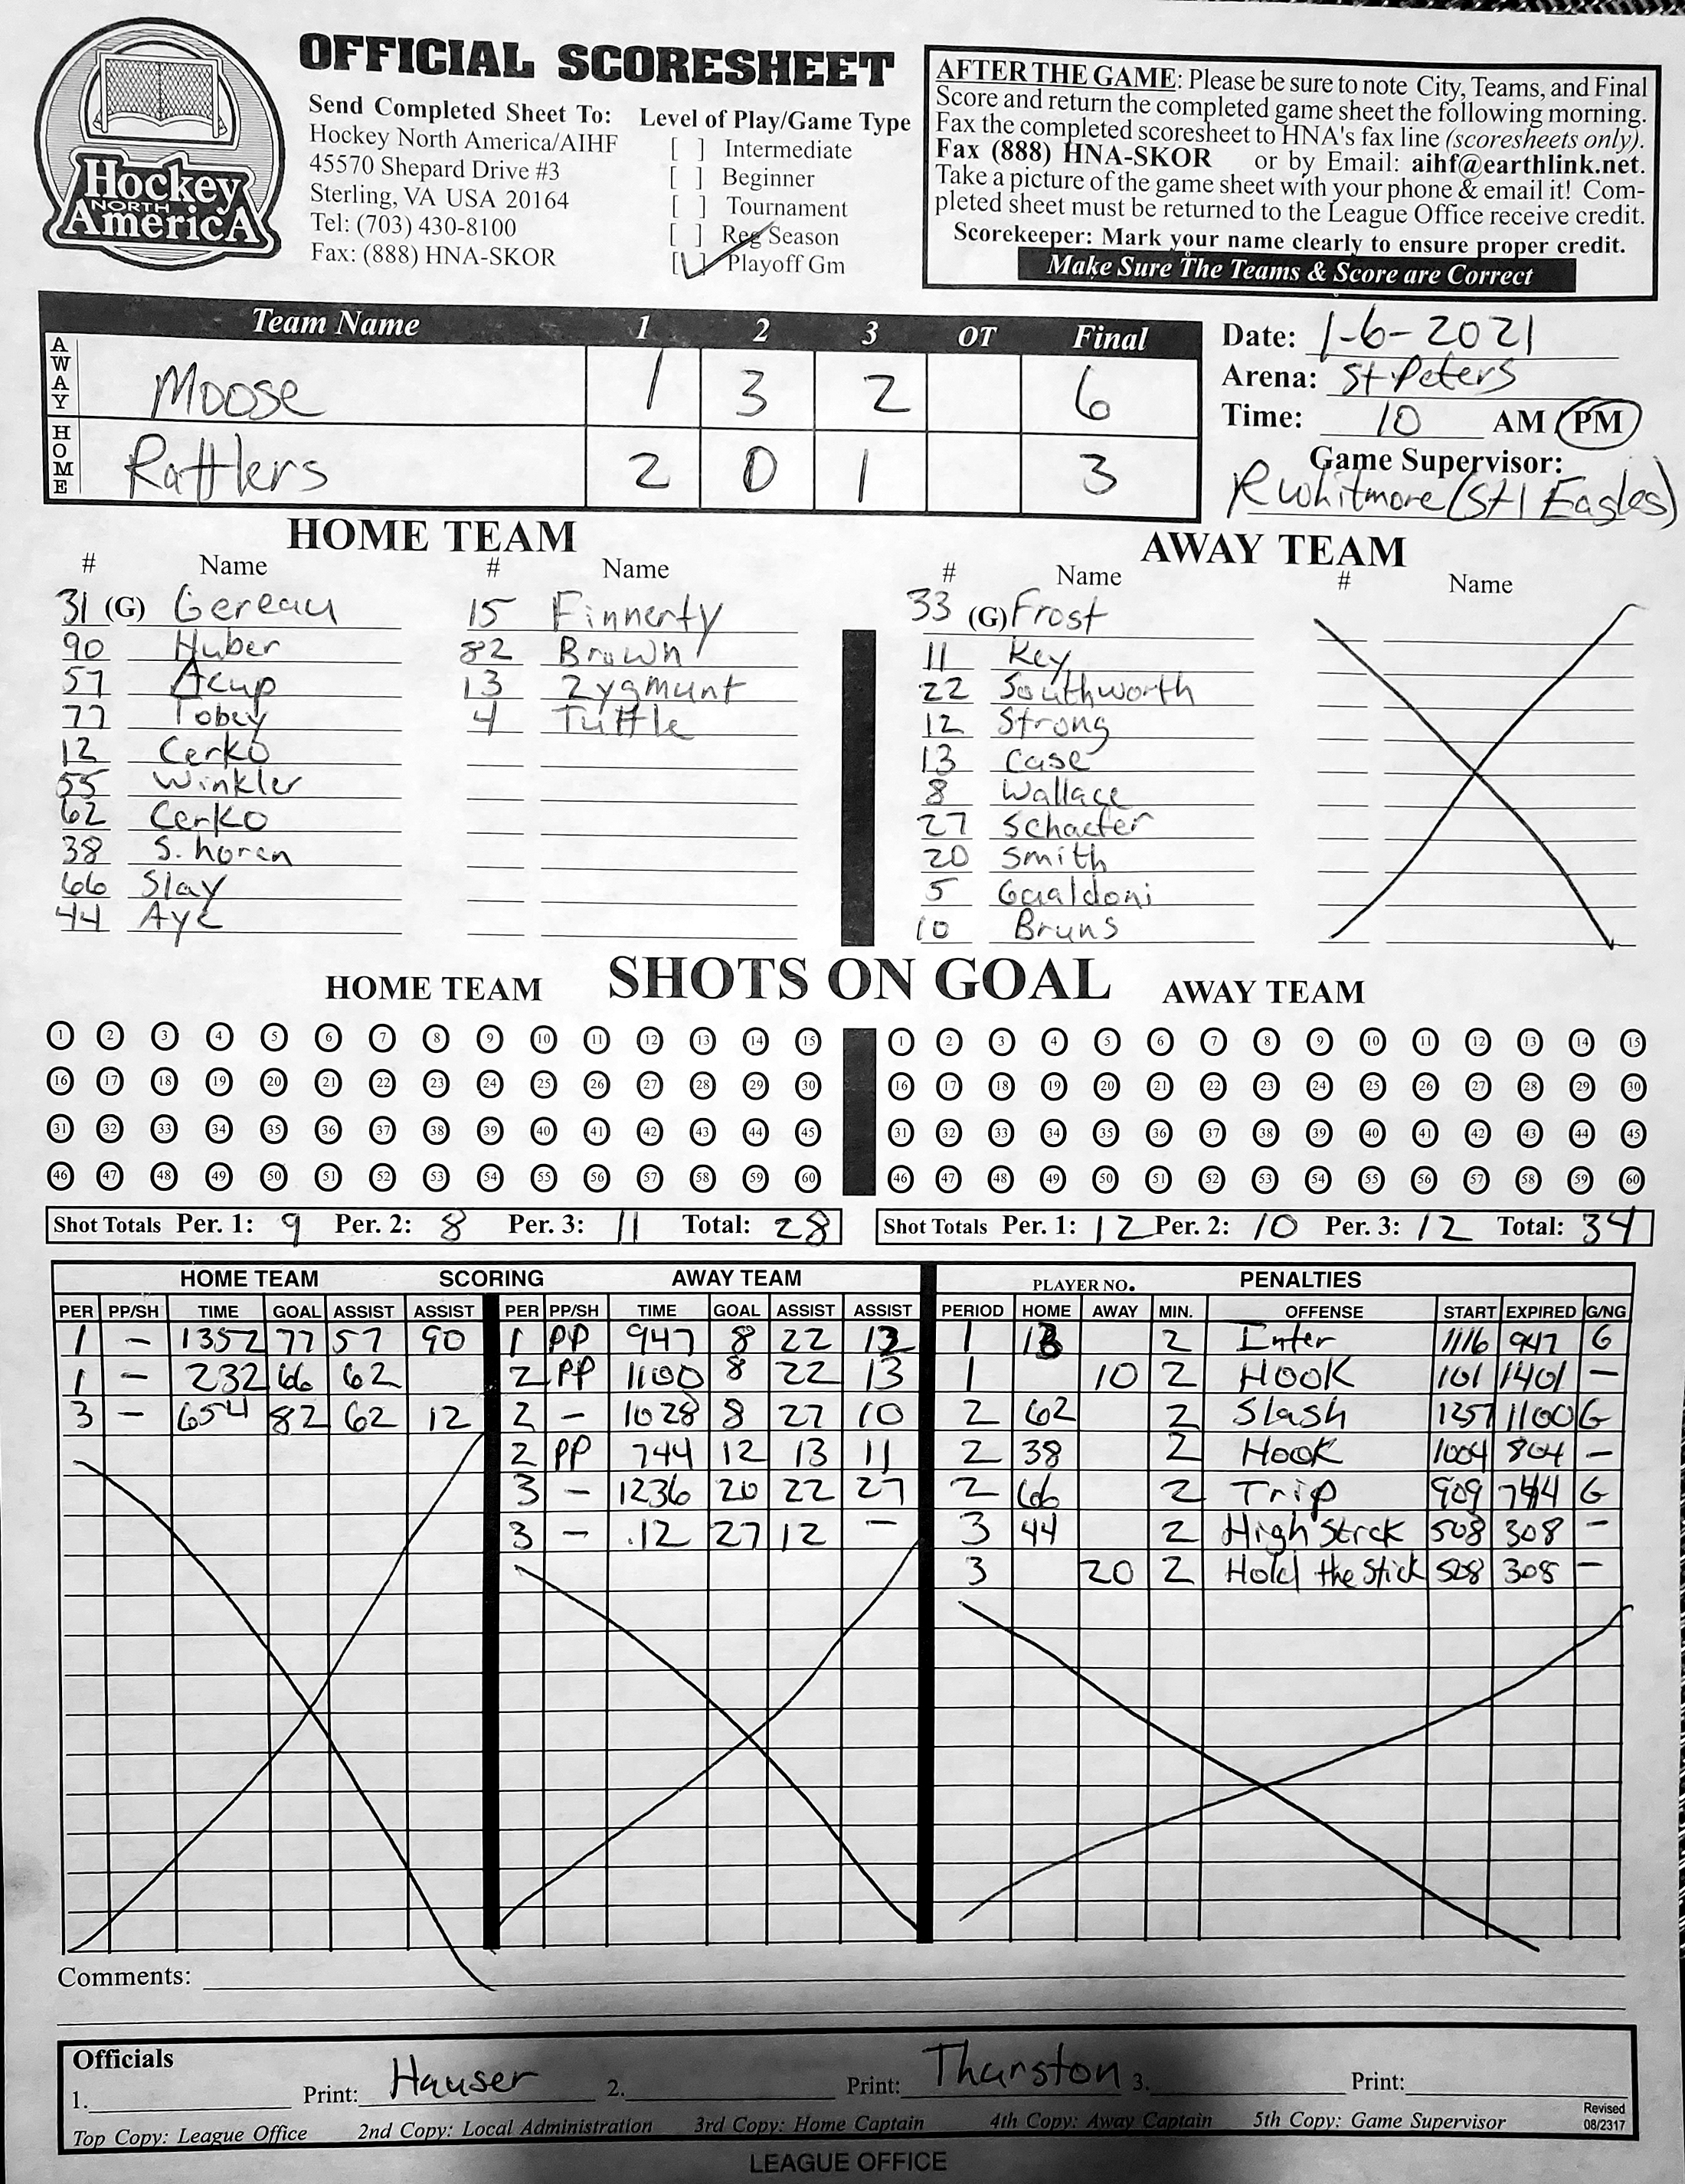 Hockey
NORTH
AmericA
OFFICIAL SCORESHEET
Send Completed Sheet To:
Hockey North America/AIHF
45570 Shepard Drive #3
Sterling, VA USA 20164
Tel: (703) 430-8100
Fax: (888) HNA-SKOR
Level of Play/Game Type
[ ] Intermediate
[ ] Beginner
[ ] Tournament
[ ] Reg Season
[✓] Playoff Gm
AFTER THE GAME: Please be sure to note City, Teams, and Final
Score and return the completed game sheet the following morning.
Fax the completed scoresheet to HNA's fax line (scoresheets only).
Fax (888) HNA-SKOR or by Email: aihf@earthlink.net.
Take a picture of the game sheet with your phone & email it! Com-
pleted sheet must be returned to the League Office receive credit.
Scorekeeper: Mark your name clearly to ensure proper credit.
Make Sure The Teams & Score are Correct
Team Name 1 2 3 OT Final
AWAY Moose 1 3 2 6
HOME Rattlers 2 0 1 3
Date: 1-6-2021
Arena: St Peters
Time: 10 AM PM
Game Supervisor:
R Whitmore (Stl Eagles)
HOME TEAM
# Name # Name
31 (G) Gereau 15 Finnerty
90 Huber 82 Brown
57 Acup 13 Zygmunt
77 Tobey 4 Tuttle
12 Cerko
55 Winkler
62 Cerko
38 S. horen
66 Slay
44 Aye
AWAY TEAM
# Name # Name
33 (G) Frost
11 Key
22 Southworth
12 Strong
13 Case
8 Wallace
27 Schaefer
20 Smith
5 Gualdoni
10 Bruns
HOME TEAM SHOTS ON GOAL AWAY TEAM
1 2 3 4 5 6 7 8 9 10 11 12 13 14 15 1 2 3 4 5 6 7 8 9 10 11 12 13 14 15
16 17 18 19 20 21 22 23 24 25 26 27 28 29 30 16 17 18 19 20 21 22 23 24 25 26 27 28 29 30
31 32 33 34 35 36 37 38 39 40 41 42 43 44 45 31 32 33 34 35 36 37 38 39 40 41 42 43 44 45
46 47 48 49 50 51 52 53 54 55 56 57 58 59 60 46 47 48 49 50 51 52 53 54 55 56 57 58 59 60
Shot Totals Per. 1: 9 Per. 2: 8 Per. 3: 11 Total: 28 Shot Totals Per. 1: 12 Per. 2: 10 Per. 3: 12 Total: 34
HOME TEAM SCORING AWAY TEAM PLAYER NO. PENALTIES
PER PP/SH TIME GOAL ASSIST ASSIST PER PP/SH TIME GOAL ASSIST ASSIST PERIOD HOME AWAY MIN. OFFENSE START EXPIRED G/NG
1 - 1352 77 57 90 1 PP 947 8 22 1 13 2 Inter 1116 947 G
1 - 232 66 62 2 PP 1100 8 22 13 1 10 2 Hook 101 1401 -
3 - 654 82 62 12 2 - 1028 8 27 10 2 62 2 Slash 1257 1100 G
2 PP 744 12 13 11 2 38 2 Hook 1004 804 -
3 - 1236 20 22 27 2 66 2 Trip 909 744 G
3 - .12 27 12 - 3 44 2 High Stick 508 308 -
3 20 2 Hold the Stick 508 308 -
Comments:
Officials
1. Print: Hauser 2. Print: Thurston 3. Print:
Top Copy: League Office 2nd Copy: Local Administration 3rd Copy: Home Captain 4th Copy: Away Captain 5th Copy: Game Supervisor
Revised
08/2317
LEAGUE OFFICE